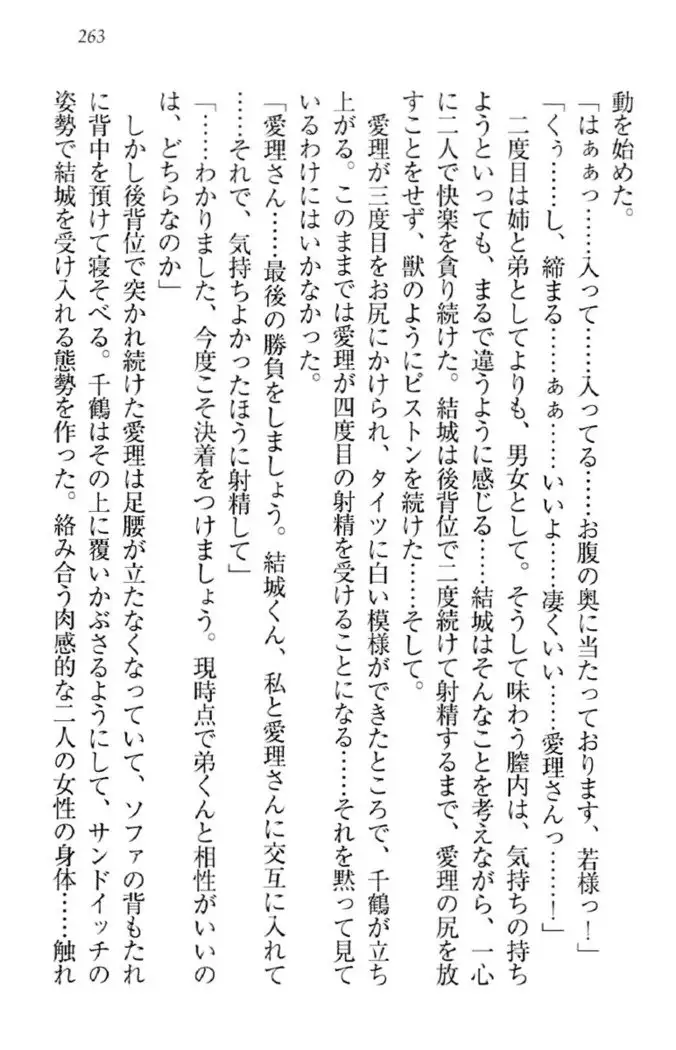 263
動を始めた。
「はぁぁっ……入って……入ってる……お腹の奥に当たっております、若様っ！」
「くぅ……し、締まる……ぁぁ……いいよ……凄くいい……愛理さんっ……！」
二度目は姉と弟としてよりも、男女として。そうして味わう膣内は、気持ちの持ち
ようといっても、まるで違うように感じる……結城はそんなことを考えながら、一心
に二人で快楽を貪り続けた。結城は後背位で二度続けて射精するまで、愛理の尻を放
すことをせず、獣のようにピストンを続けた……そして。
愛理が三度目をお尻にかけられ、タイツに白い模様ができたところで、千鶴が立ち
上がる。このままでは愛理が四度目の射精を受けることになる……それを黙って見て
いるわけにはいかなかった。
「愛理さん……最後の勝負をしましょう。結城くん、私と愛理さんに交互に入れて
……それで、気持ちよかったほうに射精して」
「……わかりました、今度こそ決着をつけましょう。現時点で弟くんと相性がいいの
は、どちらなのか」
しかし後背位で突かれ続けた愛理は足腰が立たなくなっていて、ソファの背もたれ
に背中を預けて寝そべる。千鶴はその上に覆いかぶさるようにして、サンドイッチの
姿勢で結城を受け入れる態勢を作った。絡み合う肉感的な二人の女性の身体……触れ